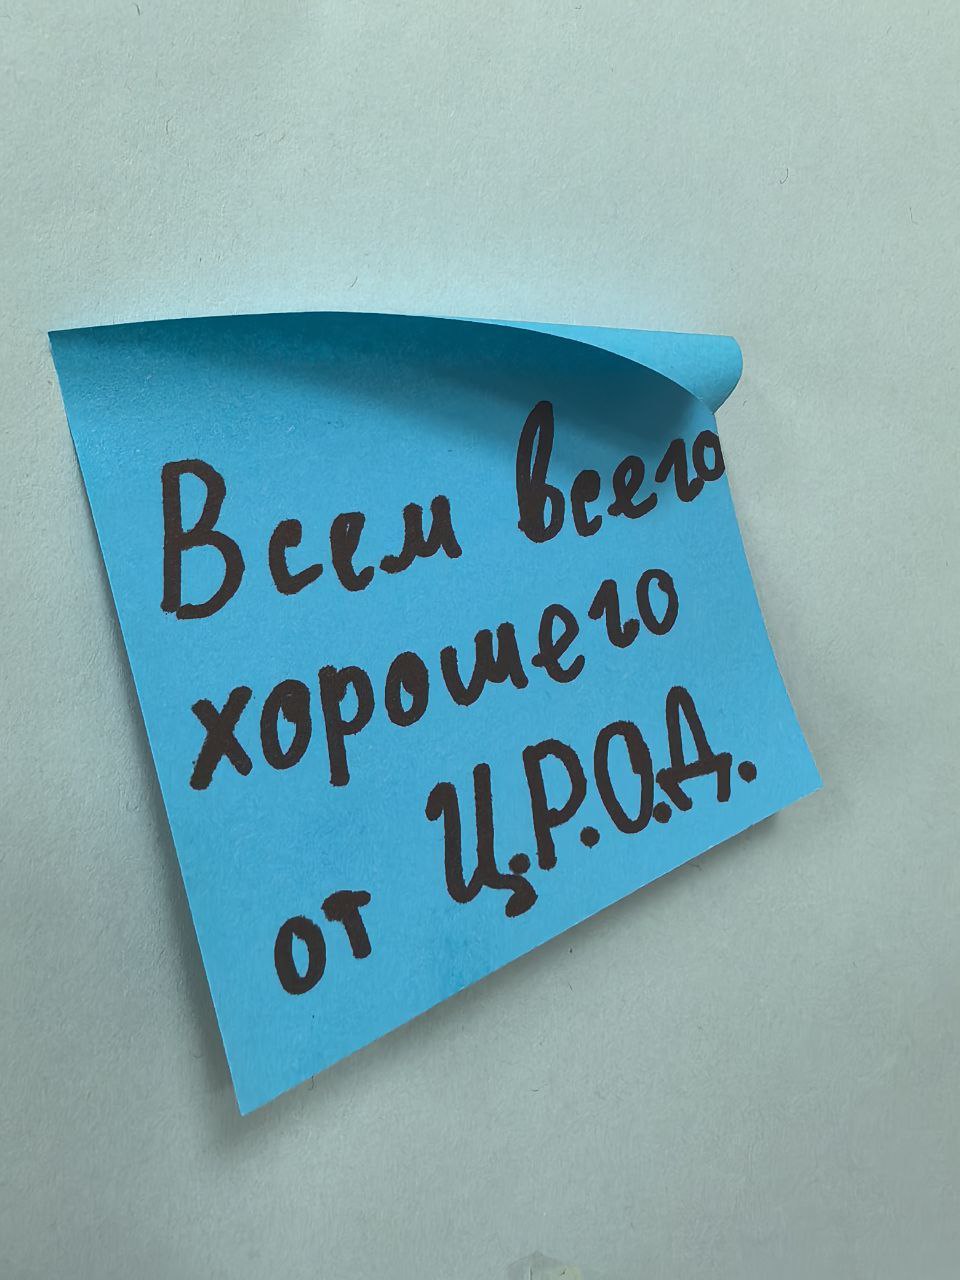 Всем всего
хорошего
от Ц.Р.О.Д.